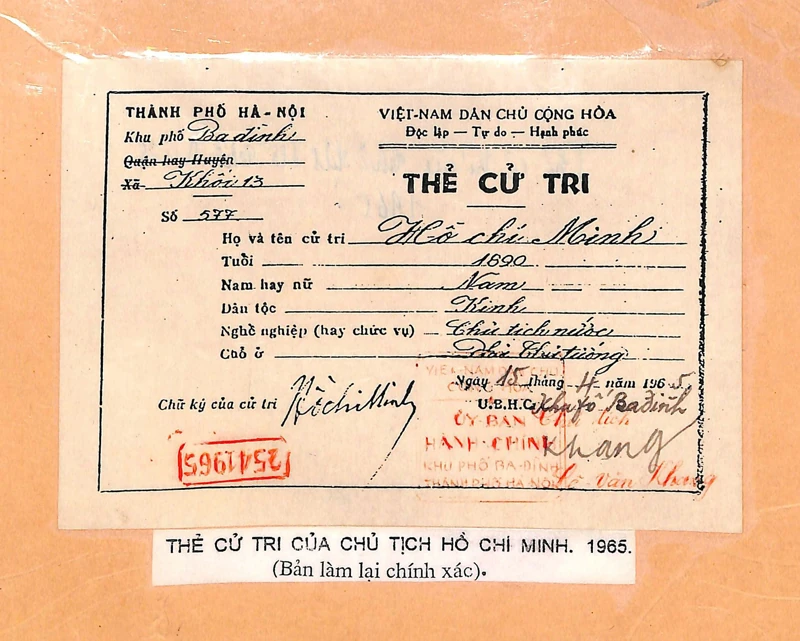 THÀNH PHỐ HÀ-NỘI
Khu phố Ba đình
Quận hay Huyện
Xã Khối 13
Số 577
VIỆT-NAM DÂN CHỦ CỘNG HÒA
Độc lập — Tự do — Hạnh phúc
THẺ CỬ TRI
Họ và tên cử tri Hồ chí Minh
Tuổi 1890
Nam hay nữ Nam
Dân tộc Kinh
Nghề nghiệp (hay chức vụ) Chủ tịch nước
Chỗ ở Phủ Thủ tướng
Ngày 15 tháng 4 năm 1965
Chữ ký của cử tri HồchíMinh
U.B.H.C. Khu fố Ba đình
VIỆT-NAM DÂN CHỦ
CỘNG HÒA
ỦY-BAN
HÀNH-CHÍNH
KHU PHỐ BA-ĐÌNH
THÀNH PHỐ HÀ NỘI
Chủ tịch
Khang
Văn Khang
2541965
THẺ CỬ TRI CỦA CHỦ TỊCH HỒ CHÍ MINH. 1965.
(Bản làm lại chính xác).